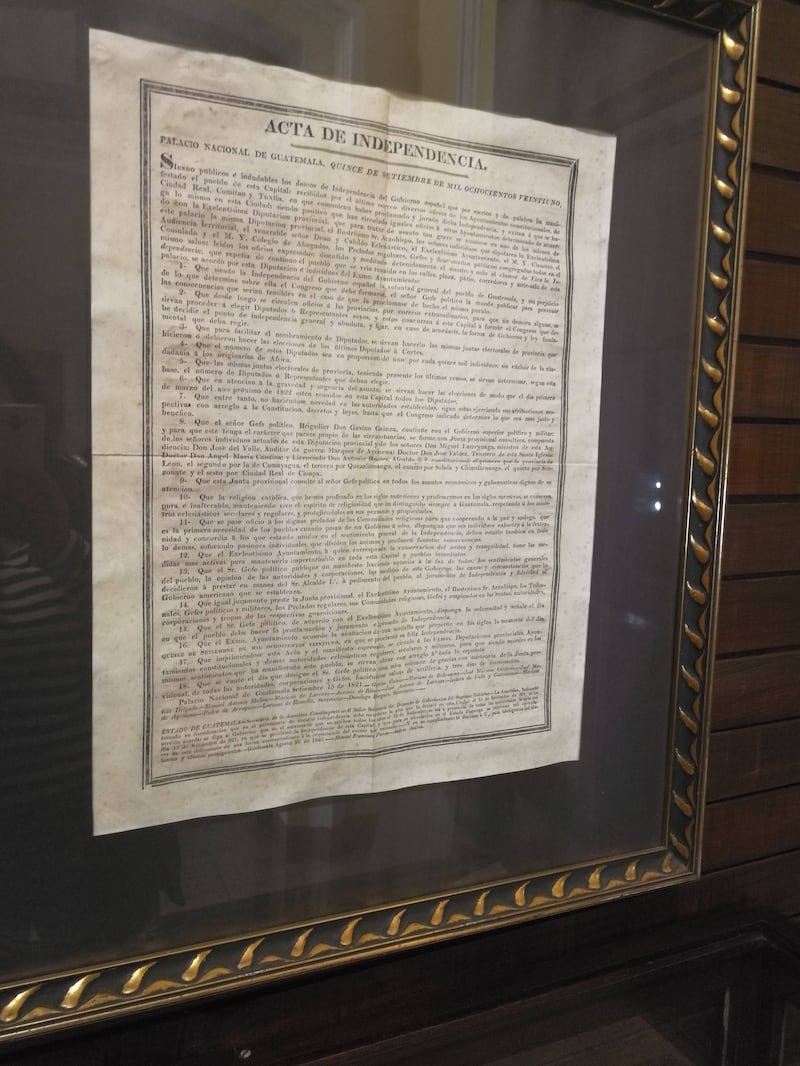 ACTA DE INDEPENDENCIA.
PALACIO NACIONAL DE GUATEMALA, QUINCE DE SETIEMBRE DE MIL OCHOCIENTOS VEINTIUNO.
Siendo públicos é indudables los deseos de Independencia del Gobierno español que por escrito y de palabra ha mani-
festado el pueblo de esta Capital: recibidos por el último correo diversos oficios de los Ayuntamientos constitucionales de
Ciudad Real, Comitan y Tuxtla, en que comunican haber proclamado y jurado dicha Independencia, y excitan á que se ha-
ga lo mismo en esta Ciudad: siendo positivo que han circulado iguales oficios á otros Ayuntamientos: determinado de acuer-
do con la Exelentísima Diputacion provincial, que para tratar de asunto tan grave se
este palacio la misma Diputacion provincial, el Ilustrísimo Sr. Arzobispo, los señores individuos que
Audiencia territorial, el venerable señor Dean y Cabildo Eclesiástico, el Exelentísimo Ayuntamiento, el M. Y.
Consulado y el M. Y. Colegio de Abogados, los Prelados regulares, Gefes y funcionarios públicos congregados todos en el
mismo salon: leidos los oficios expresados: discutido y meditado detenidamente el asunto; y oido el clamor de Viva la In-
dependencia, que repetía de continuo el pueblo que se veía reunido en las calles, plaza, patio, corredores y ante-sala de este
palacio, se acordó por esta Diputacion é individuos del Exmo. Ayuntamiento:
1.° Que siendo la Independencia del Gobierno español la voluntad general del pueblo de Guatemala, y sin perjuicio
de lo que determine sobre ella el Congreso que debe formarse, el señor Gefe político la mande publicar para prevenir
las consecuencias que serian temibles en el caso de que la proclamase de hecho el mismo pueblo.
2.° Que desde luego se circulen oficios á las provincias, por correos extraordinarios, para que sin demora alguna, se
sirvan proceder á elegir Diputados ó Representantes suyos, y estos concurran á esta Capital á formar el Congreso que de-
be decidir el punto de independencia general y absoluta, y fijar, en caso de acordarla, la forma de Gobierno y ley funda-
mental que deba regir.
3.° Que para facilitar el nombramiento de Diputados, se sirvan hacerlo las mismas juntas electorales de provincia que
hicieron ó debieron hacer las elecciones de los últimos Diputados á Cortes.
4.° Que el número de estos Diputados sea en proporcion de uno por cada quince mil individuos, sin excluir de la ciu-
dadanía á los originarios de Africa.
5.° Que las mismas juntas electorales de provincia, teniendo presente los últimos censos, se sirvan determinar, segun esta
base, el número de Diputados ó Representantes que deban elegir.
6.° Que en atencion á la gravedad y urgencia del asunto, se sirvan hacer las elecciones de modo que el dia primero
de marzo del año próximo de 1822 esten reunidos en esta Capital todos los Diputados.
7. Que entre tanto, no haciéndose novedad en las autoridades establecidas, sigan estas ejerciendo sus atribuciones res-
pectivas con arreglo á la Constitucion, decretos y leyes, hasta que el Congreso indicado determine lo que sea mas justo y
benéfico.
8. Que el señor Gefe político, Brigadier Don Gavino Gainza, continúe con el Gobierno superior político y militar;
y para que este tenga el carácter que parece propio de las circunstancias, se forme una Junta provisional consultiva, compuesta
de los señores individuos actuales de esta Diputacion provincial y de los señores Don Miguel Larreynaga, ministro de esta Au-
diencia: Don José del Valle, Auditor de guerra: Marques de Aycinena: Doctor Don José Valdez, Tesorero de esta Santa Iglesia:
Doctor Don Angel Maria Candina; y Licenciado Don Antonio Robles, Alcalde
Leon, el segundo por la de Comayagua, el tercero por Quezaltenango, el cuarto por Solola y Chimaltenango, el quinto por Son-
zonate y el sesto por Ciudad Real de Chiapa.
9.° Que esta Junta provisional consulte al señor Gefe político en todos los asuntos económicos y gubernativos dignos de su
atencion.
10.° Que la religion católica, que hemos profesado en los siglos anteriores y profesaremos en los siglos sucesivos, se conserve
pura é inalterable, manteniendo vivo el espíritu de religiosidad que ha distinguido siempre á Guatemala, respetando á los minis-
tros eclesiásticos seculares y regulares, y protejiéndolos en sus personas y propiedades.
11.° Que se pase oficio á los dignos prelados de las Comunidades religiosas para que cooperando á la paz y sosiego, que
es la primera necesidad de los pueblos cuando pasan de un Gobierno á otro, dispongan que sus individuos exhorten á la frater-
nidad y concordia á los que estando unidos en el sentimiento general de la Independencia, deben estarlo tambien en todo
lo demas, sofocando pasiones individuales que dividen los ánimos y producen funestas consecuencias.
12. Que el Exelentísimo Ayuntamiento, á quien corresponde la conservacion del orden y tranquilidad, tome las me-
didas mas activas para mantenerla imperturbable en toda esta Capital y pueblos inmediatos.
13. Que el Sr. Gefe político publique un manifiesto haciendo notorios á la faz de todos, los sentimientos generales
del pueblo, la opinion de las autoridades y corporaciones, las medidas de este Gobierno, las causas y circunstancias que lo
decidieron á prestar en manos del Sr. Alcalde 1.°, á pedimento del pueblo, el juramento de Independencia y fidelidad al
Gobierno americano que se establezca.
14. Que igual juramento preste la Junta provisional, el Exelentísimo Ayuntamiento, el Ilustrísimo Sr. Arzobispo, los Tribu-
nales, Gefes políticos y militares, los Prelados regulares, sus Comunidades religiosas, Gefes y empleados en las rentas, autoridades,
corporaciones y tropas de las respectivas guarniciones.
15. Que el Sr. Gefe político, de acuerdo con el Exelentísimo Ayuntamiento, disponga la solemnidad y señale el dia
en que el pueblo deba hacer la proclamacion y juramento expresado de Independencia.
16. Que el Exmo. Ayuntamiento acuerde la acuñacion de una medalla que perpetúe en los siglos la memoria del dia
QUINCE DE SETIEMBRE DE MIL OCHOCIENTOS VEINTIUNO, en que se proclamó su feliz Independencia.
17. Que imprimiéndose esta Acta y el manifiesto expresado, se circule á las Exmas. Diputaciones provinciales, Ayun-
tamientos constitucionales y demas autoridades eclesiásticas regulares, seculares y militares, para que siendo acordes en los
mismos sentimientos que ha manifestado este pueblo, se sirvan obrar con arreglo á todo lo expuesto.
18. Que se cante el dia que designe el Sr. Gefe político una misa solemne de gracias con asistencia de la Junta pro-
visional, de todas las autoridades, corporaciones y Gefes, haciéndose salvas de artillería, y tres dias de iluminacion.
Palacio Nacional de Guatemala Setiembre 15 de 1821.—Gavino Gainza—Mariano de Beltranena—José Mariano Calderon—José Ma-
tias Delgado—Manuel Antonio Molina—Mariano de Larrave—Antonio de Rivera—José Antonio de Larrave—Isidoro de Valle y Castriciones—Mariano
de Aycinena—Pedro de Arroyave—Lorenzo de Romaña, Secretario—Domingo Dieguez, Secretario.
ESTADO DE GUATEMALA